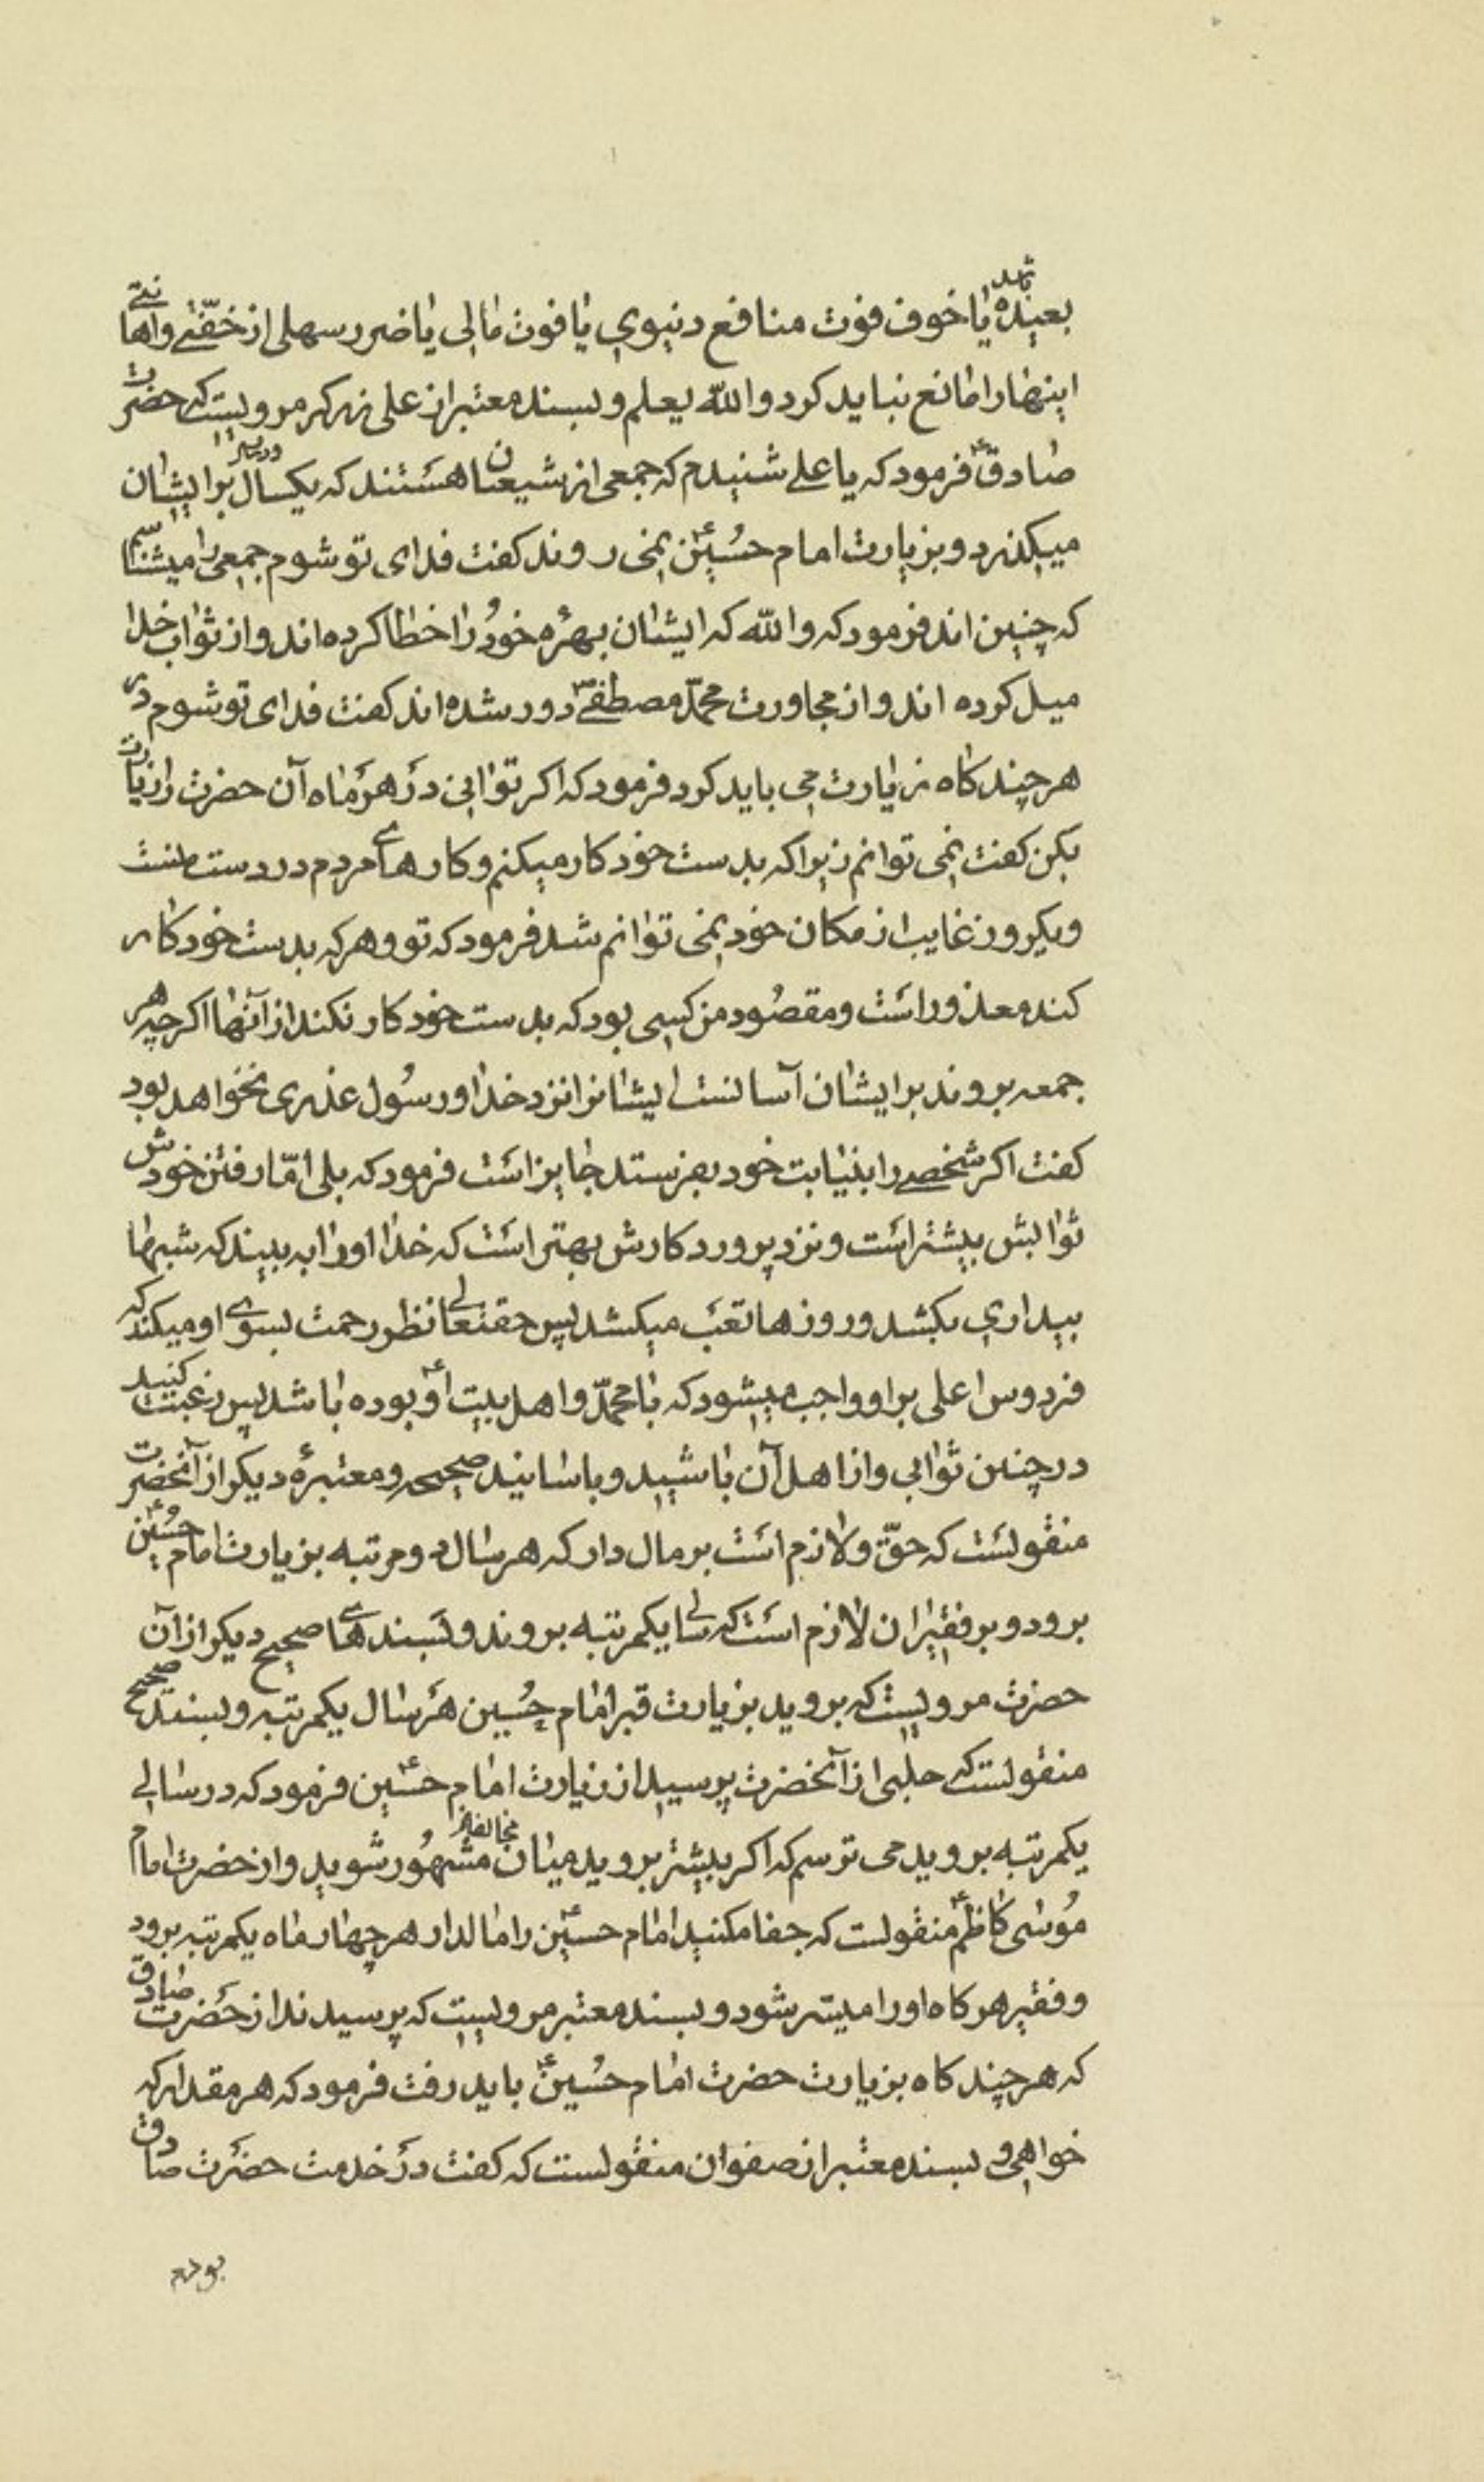 بعیده یا خوف فوت منافع دنیوی یا فوت مالی یا ضرر سهلی از خفّتی و اهانتی
اینها را مانع نباید کرد و الله یعلم و بسند معتبر از علی زهر که مرویست که حضرت
صادق ع فرمود که یا علی شنیدم که جمعی از شیعیان ما هستند که یکسال و دو سال بر ایشان
میگذرد و بزیارت امام حسین ع نمی روند کفت فدای تو شوم جمعی را میشناسم
که چنین اند فرمود که و الله که ایشان بهرهٔ خود را خطا کرده اند و از ثواب خدا
میل کرده اند و از مجاورت محمّد مصطفی ص دور شده اند کفت فدای تو شوم در
هر چند کاه زیارت می باید کرد فرمود که اکر توانی در هر ماه آن حضرت را زیارت
بکن کفت نمی توانم زیرا که بدست خود کار میکنم و کارهای مردم در دست منست
و یکروز غایب از مکان خود نمی توانم شد فرمود که تو و هر که بدست خود کار
کند معذور است و مقصود من کسی بود که بدست خود کار نکند از آنها اکر چه هر
جمعه بروند بر ایشان آسانست ایشانرا نزد خدا و رسول عذری نخواهد بود
کفت اکر شخصی را بنیابت خود بفرستد جایز است فرمود که بلی امّا رفتن خودش
ثوابش بیشتر است و نزد پروردکارش بهتر است که خدا او را به بیند که شبها
بیداری بکشد و روزها تعب میکشد پس حقتعالی نظر رحمت بسوی او میکند که
فردوس اعلی بر او واجب میشود که با محمّد و اهل بیت او ع بوده باشد پس رغبت کنید
در چنین ثوابی و از اهل آن باشید و باسانید صحیحه و معتبرهٔ دیکر از آنحضرت
منقولست که حقّ و لازم است بر مال دار که هر سال دو مرتبه بزیارت امام حسین ع
برود و بر فقیران لازم است که سالی یکمرتبه بروند و بسندهای صحیح دیکر از آن
حضرت مرویست که بروید بزیارت قبر امام حسین هر سال یکمرتبه و بسند صحیح
منقولست که حلبی از آنحضرت پرسید از زیارت امام حسین ع فرمود که در سالی
یکمرتبه بروید می ترسم که اکر بیشتر بروید میان مخالفان مشهور شوید و از حضرت امام
موسی کاظم ع منقولست که جفا مکنید امام حسین ع را مالدار هر چهار ماه یکمرتبه برود
و فقیر هر کاه او را میسّر شود و بسند معتبر مرویست که پرسیدند از حضرت صادق
که هر چند کاه بزیارت حضرت امام حسین ع باید رفت فرمود که هر مقدار که
خواهی و بسند معتبر از صفوان منقولست که کفت در خدمت حضرت صادق
بودم